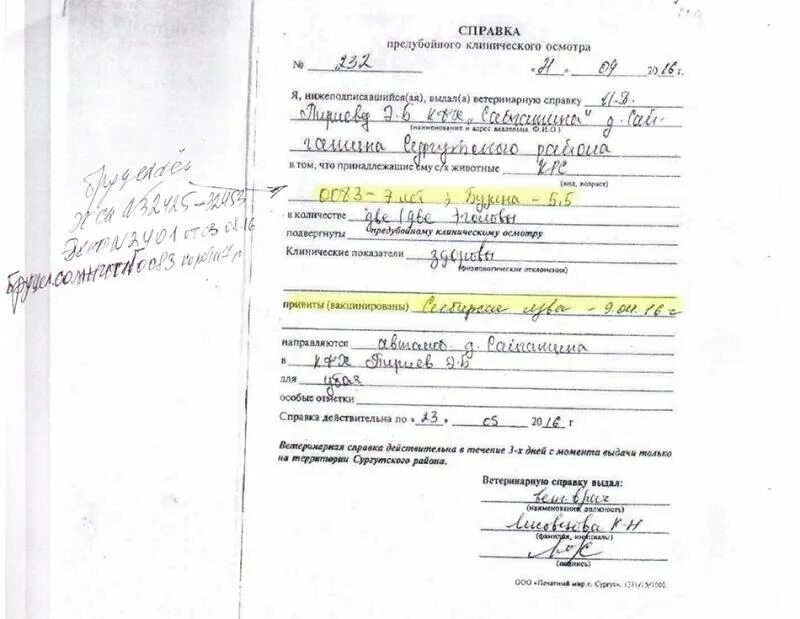 СПРАВКА
предубойного клинического осмотра
№ 232 « 21 » 09 2016 г.
Я, нижеподписавшийся(ая), выдал(а) ветеринарную справку И.П.
Пириеву Э.Б КФХ „Сайгатина" д. Сай-
(наименования и адрес владельца, Ф.И.О.)
гатина Сургутского района
в том, что принадлежащие ему с/х животные КРС
(вид, возраст)
0083 - 7 лет ; Бурина - 5,5
в количестве две (две) головы
подвергнуты предубойному клиническому осмотру
Клинические показатели здоровы
(физиологические отклонения)
привиты (вакцинированы) Сибирская язва - 9.04.16 г
направляются автомоб. д. Сайгатина
в КФХ Пириев Э.Б
для убоя
особые отметки
Справка действительна по « 23 » 05 2016 г
Ветеринарная справка действительна в течение 3-х дней с момента выдачи только
на территории Сургутского района.
Ветеринарную справку выдал:
вет. врач
(наименования должность)
К.Н
(фамилия, инициалы)
(подпись)
ООО «Печатный мир г. Сургут».
N32425-32453
N2401 от 03 08.16
N0083